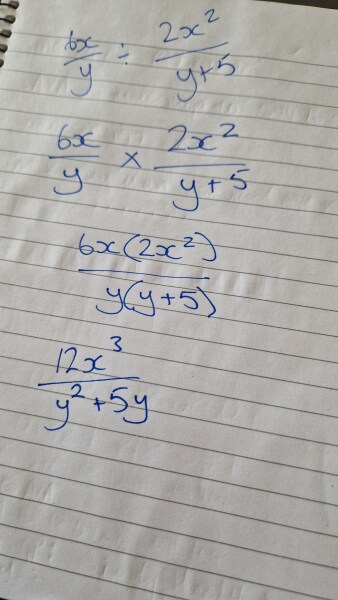 6x/y ÷ 2x²/y+5
6x/y × 2x²/y+5
6x(2x²)/y(y+5)
12x³/y²+5y